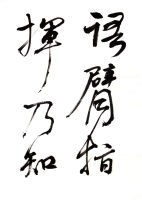 語臂指
揮乃知